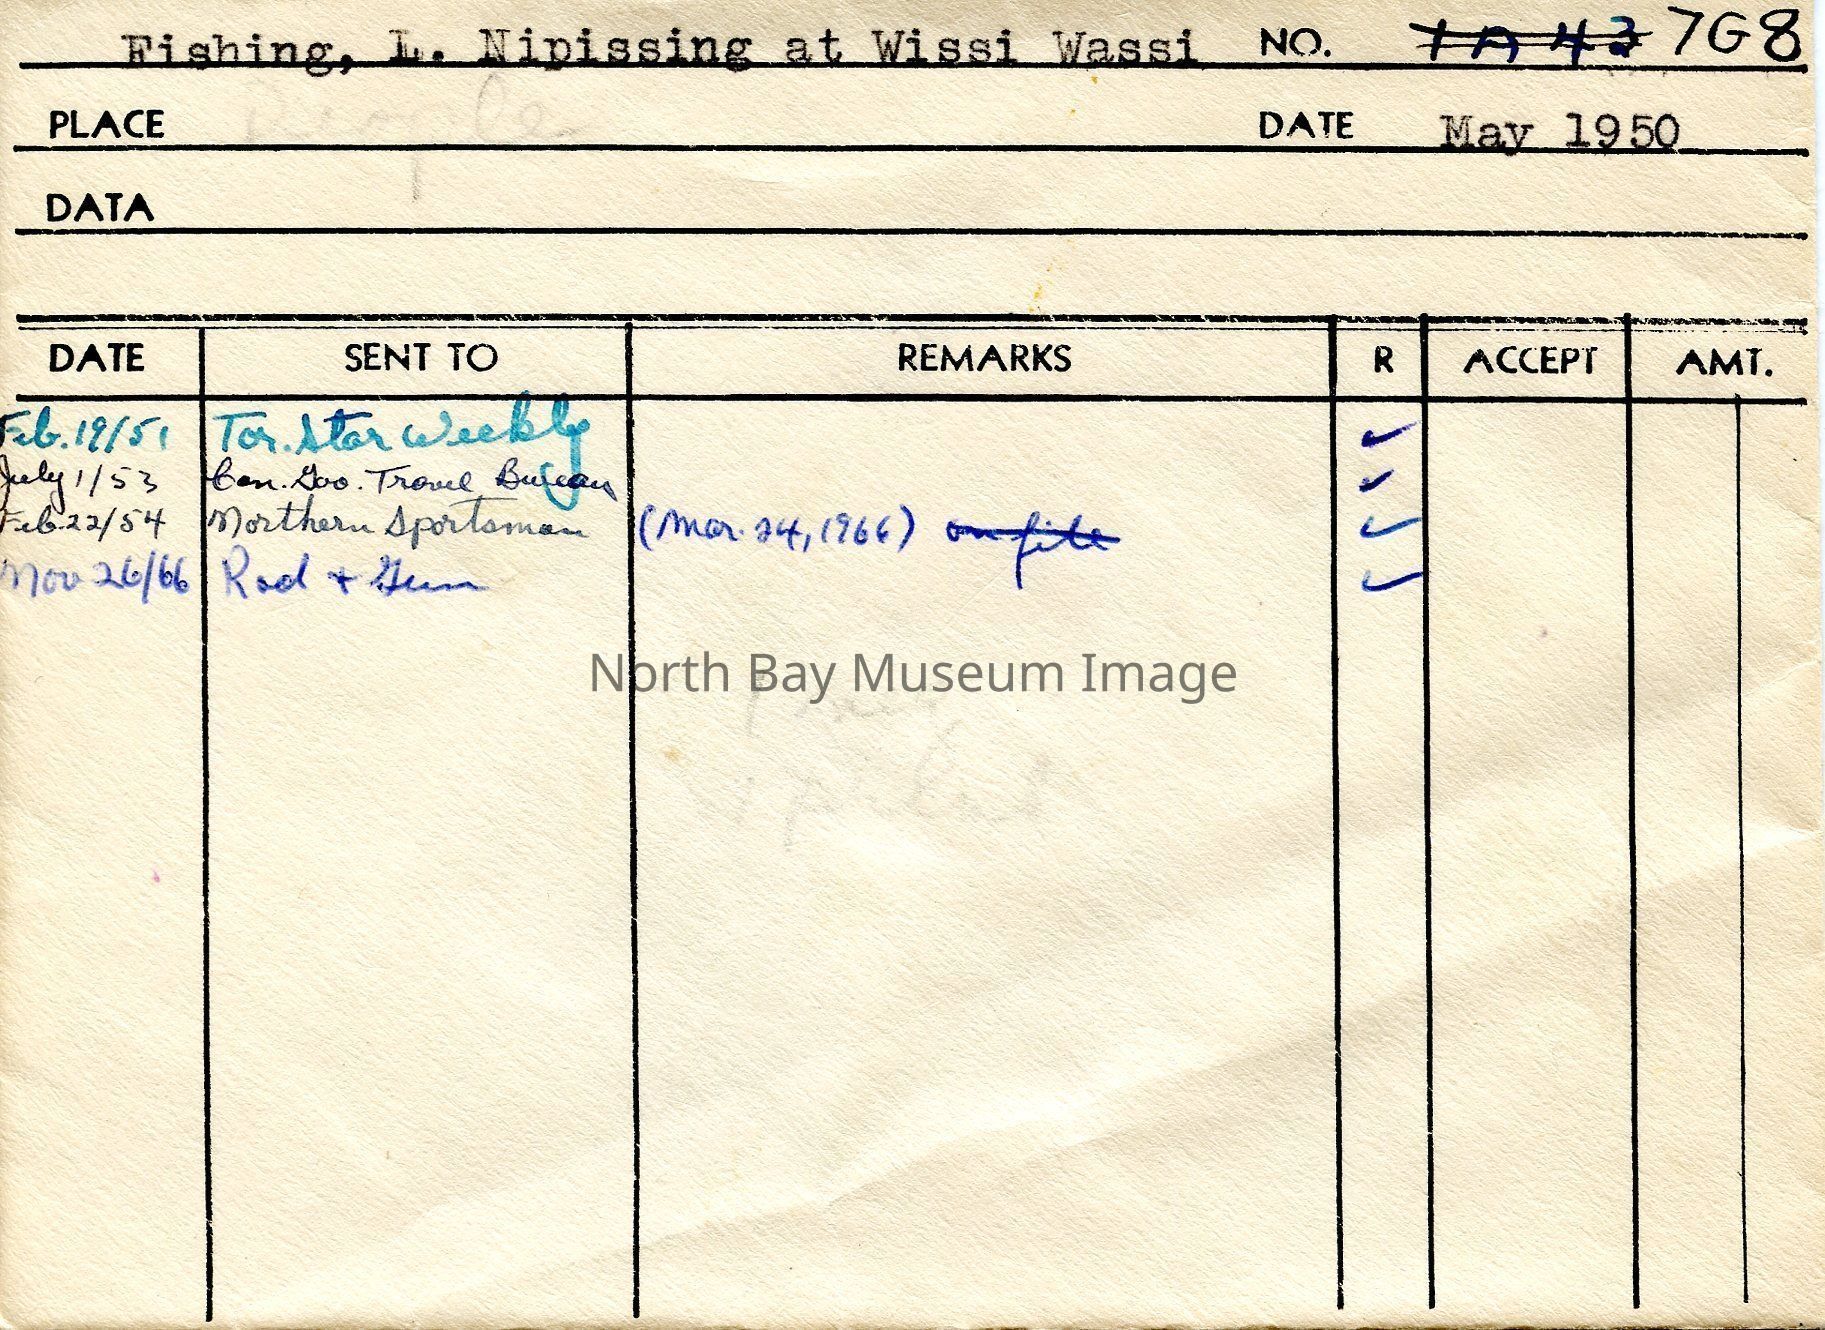 Fishing, L. Nipissing at Wissi Wassi NO. 1A42 7G8
PLACE People DATE May 1950
DATA
DATE SENT TO REMARKS R ACCEPT AMT.
Feb. 19/51 Tor. Star Weekly ✓
July 1/53 Can. Gov. Travel Bureau ✓
Feb. 22/54 Northern Sportsman (Mar. 24, 1966) on file ✓
Nov 26/66 Rod + Gun ✓
North Bay Museum Image